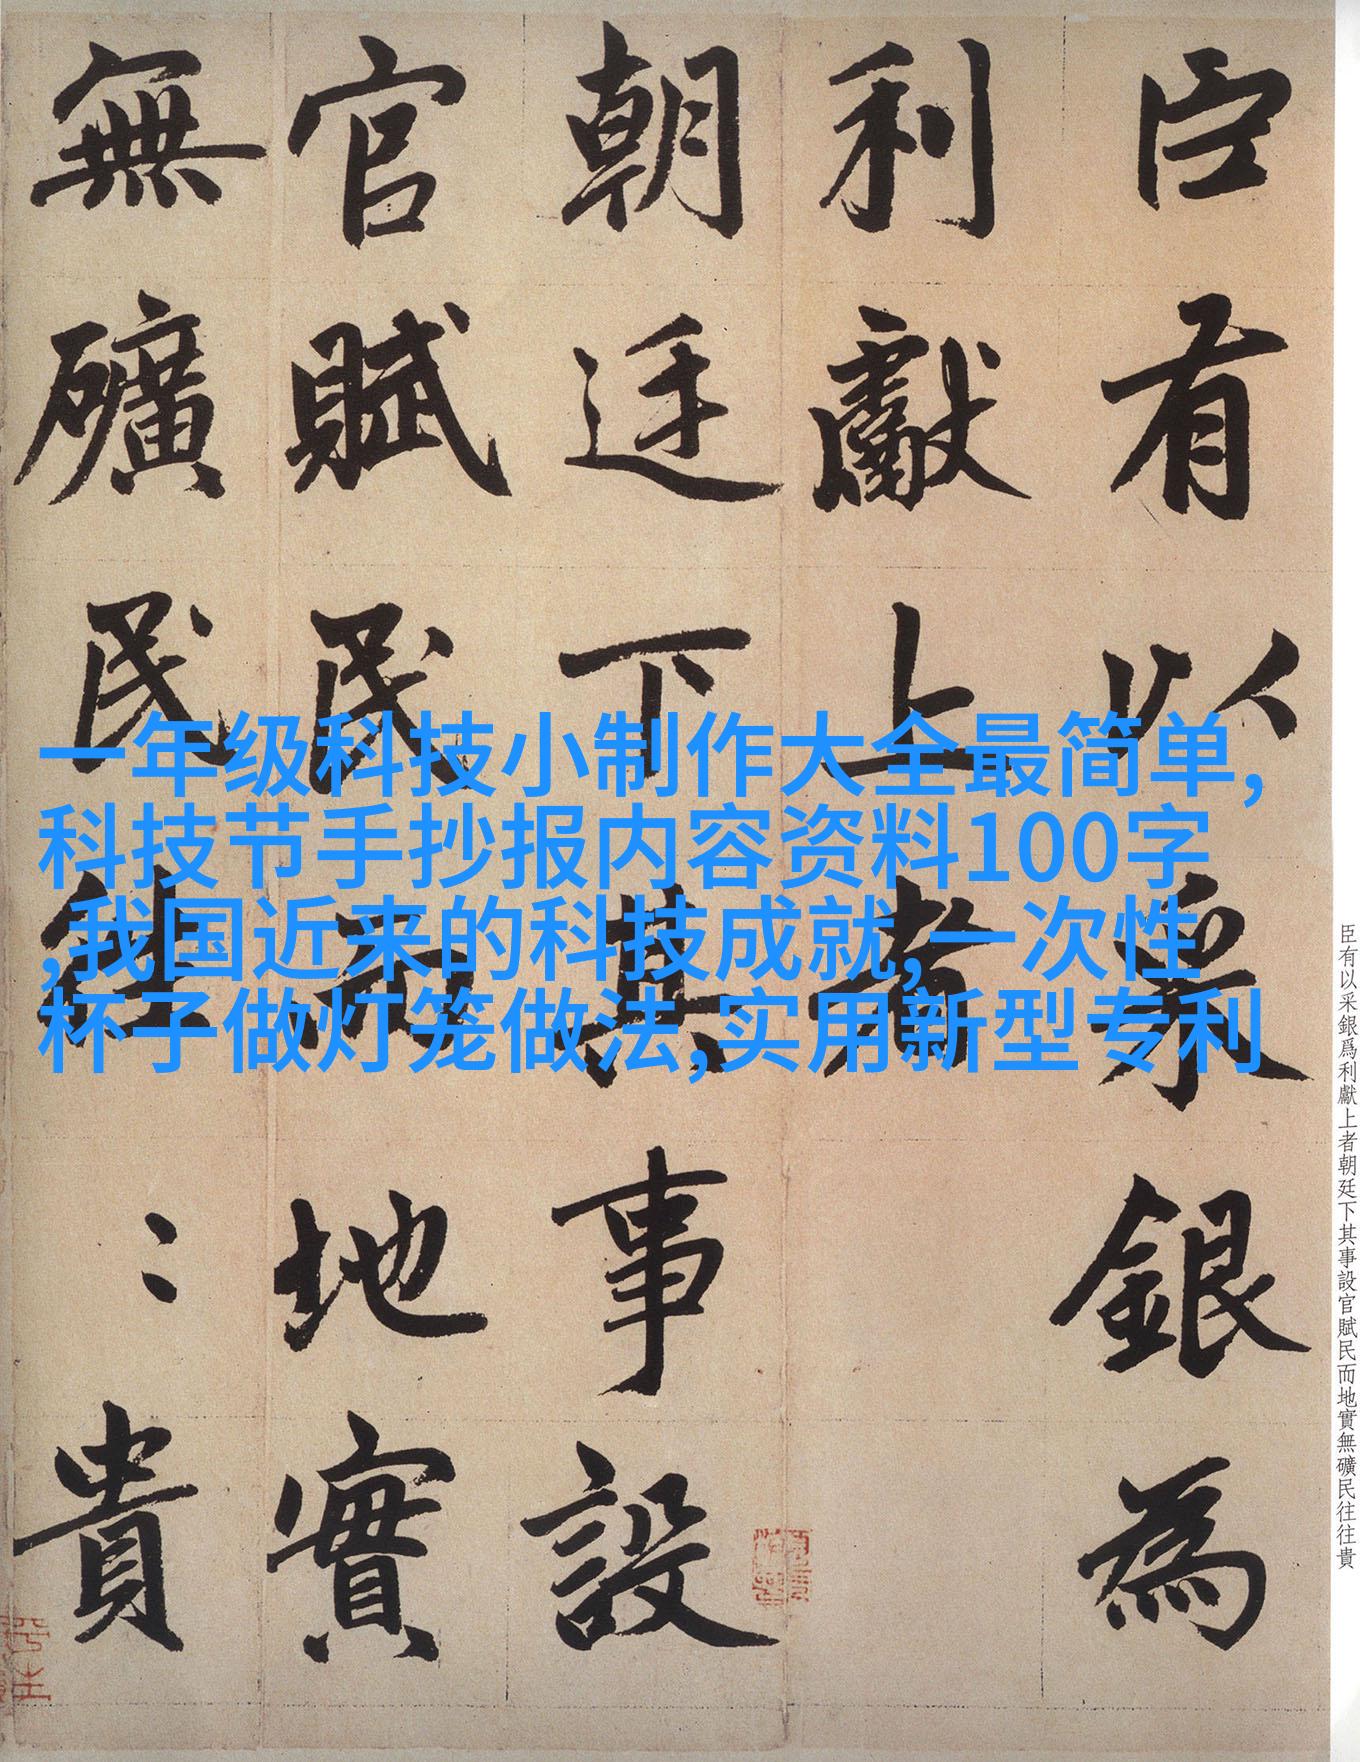 臣有以采銀為
利獻上者
朝廷下其事設
官賦民而地實
無礦民往〻貴
一年级科技小制作大全最简单,
科技节手抄报内容资料100字
,我国近来的科技成就,一次性
杯子做灯笼做法,实用新型专利
臣有以采銀爲利獻上者朝廷下其事設官賦民而地實無礦民往往貴